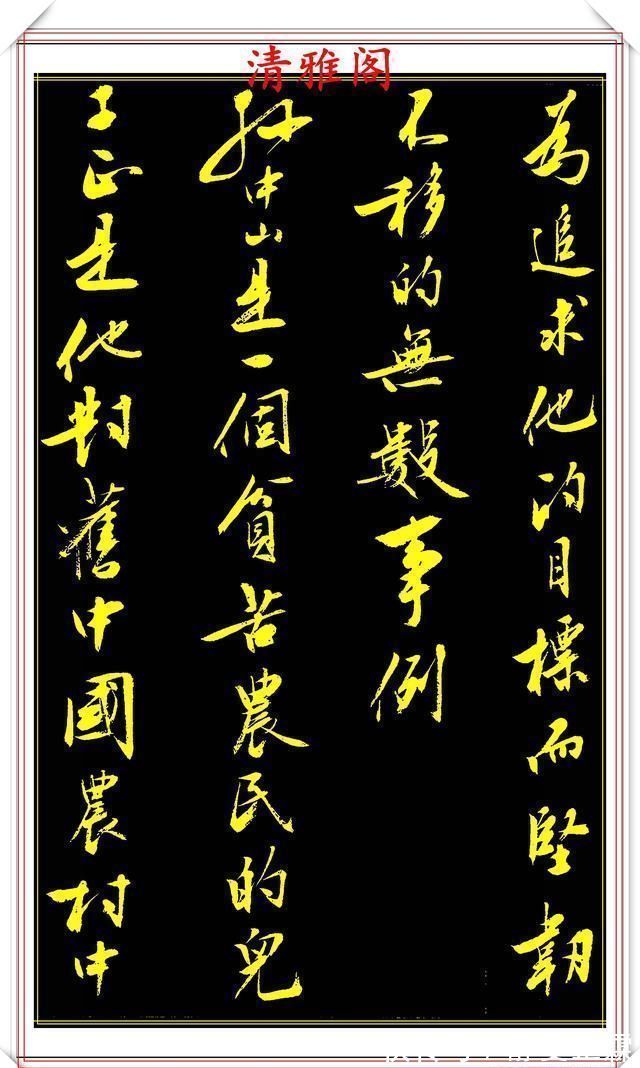 清雅阁
為追求他的目標而堅韌
不移的無數事例
孫中山是一個貧苦農民的兒
子正是他對舊中國農村中